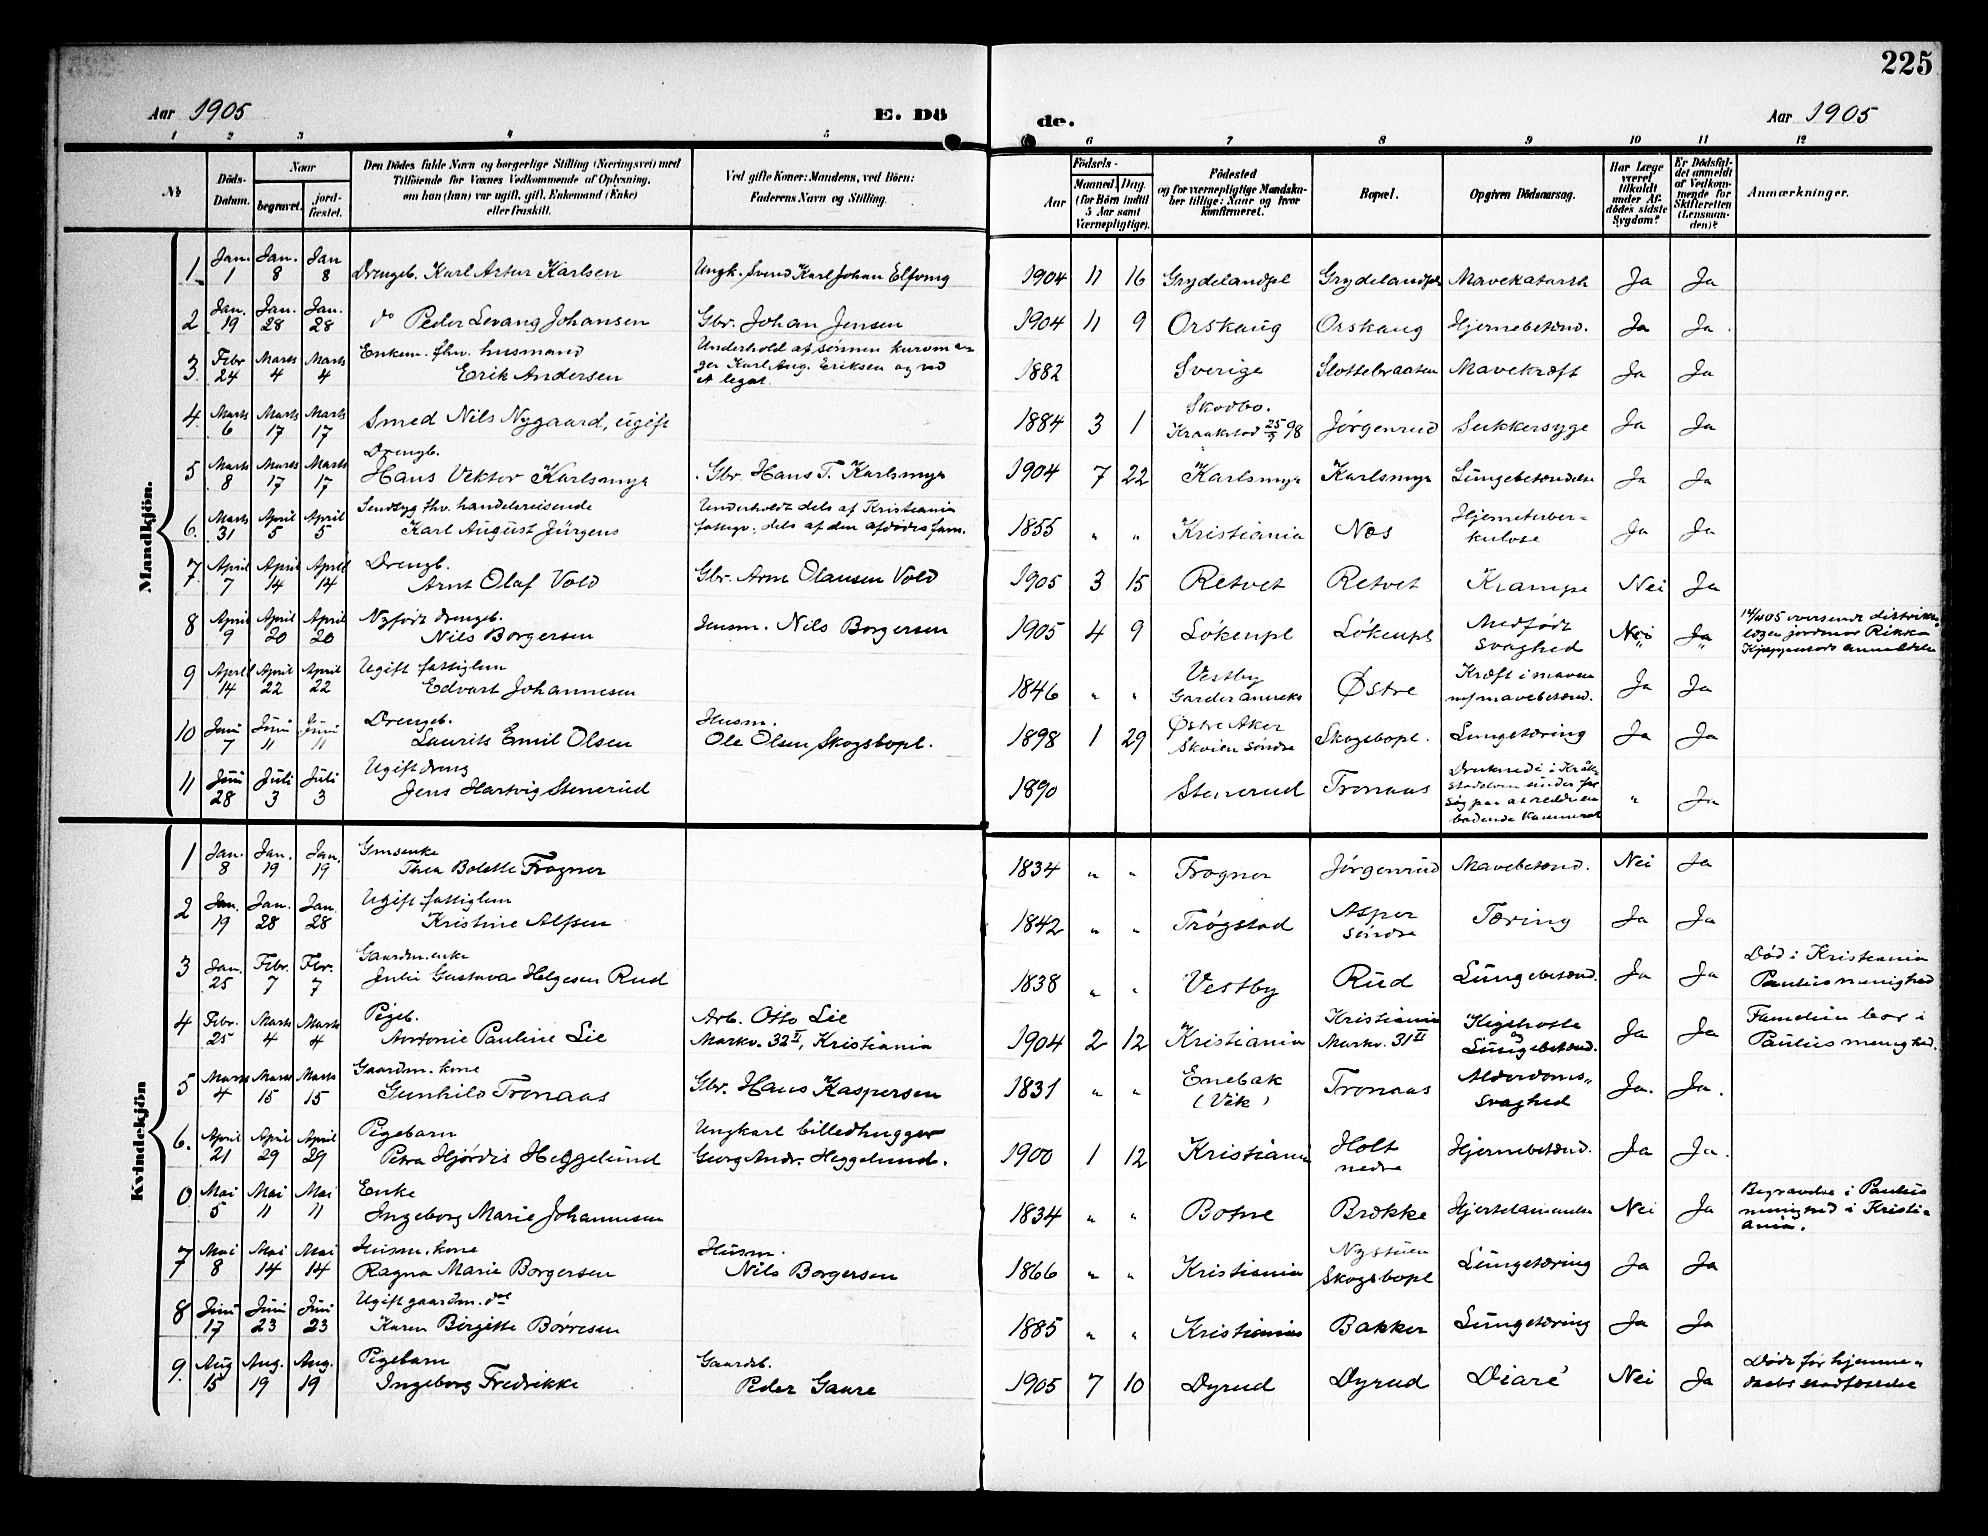 225
Aar 1905
E. Dö de.
Aar 1905
1 2 3 4 5 6 7 8 9 10 11 12
No
Döds-Datum.
Naar
begravet.
jord-fæstet.
Den Dödes fulde Navn og borgerlige Stilling (Næringsvei) med
Tilföiende for Voxnes Vedkommende af Oplysning,
om han (hun) var ugift, gift, Enkemand (Enke)
eller fraskilt.
Ved gifte Koner: Mandens, ved Börn:
Faderens Navn og Stilling.
Födsels-
Aar
Maaned. Dag.
(for Börn indtil
5 Aar samt
Værnepligtige).
Födested
og for værnepligtige Mandska-
ber tillige: Naar og hvor
konfirmeret.
Bopæl.
Opgiven Dödsaarsag.
Har Læge
været
tilkaldt
under Af-
dödes sidste
Sygdom?
Er Dödsfal-
det anmeldt
af Vedkom-
mende for
Skifteretten
(Lensman-
den)?
Anmærkninger.
Mandkjön.
1 Jan. 1 Jan. 8 Jan 8 Drengeb. Karl Artur Karlsen Ungk. Svend Karl Johan Elfving 1904 11 16 Grydelandpl Grydelandpl Mavekatarrh Ja Ja
2 Jan. 19 Jan. 28 Jan. 28 do Peder Levang Johansen Gbr. Johan Jensen 1904 11 9 Orskaug Orskaug Hjernebetænd. Ja Ja.
3. Febr 24 Marts 4 Marts 4 Enkem. fhv. husmand
Erik Andersen Underhold af sønnen kurvma-
ger Karl Aug. Eriksen og ved
et legat. 1882 Sverige Slottebraaten Mavekræft Ja Ja
4. Marts 6 Marts 17 Marts 17 Smed Nils Nygaard, ugift 1884 3 1 Skodbo.
Kraakstad 25/9 98 Jørgenrud Sukkersyge Ja Ja
5 Marts 8 Marts 17 Marts 17 Drengb.
Hans Vektor Karlsmyr Gbr. Hans T. Karlsmyr 1904 7 22 Karlsmyr Karlsmyr Lungebetændelse Ja Ja
6. Marts 31 April 5 April 5 Sindsyg fhv. handelsreisende
Karl August Jürgens Underholdt dels af Kristiania
fattigv., dels af den afdødes fam. 1855 " " Kristiania Nes Hjernetuber-
kulose Ja Ja
7. April 7 April 14 April 14 Drengb.
Arnt Olaf Vold Gbr. Arne Olausen Vold 1905 3 15 Retvet Retvet Krampe Nei Ja
8 April 9 April 20 April 20 Nyfødt drengeb.
Nils Borgersen Husm. Nils Borgersen 1905 4 9 Løkenpl Løkenpl Medfødt
svaghed Nei Ja 14/4 05 oversendt distrikts-
lægen jordmor Rikka
anmeldelse
9 April 14 April 22 April 22 Ugift fattiglem
Edvart Johannesen 1846 " " Vestby
Garder anneks Østre Kræft i maven
m/mavebetænd. Ja Ja
10 Juni 7 Juni 11 Juni 11 Drengeb.
Laurits Emil Olsen Husm.
Ole Olsen Skogsbopl. 1898 1 29 Østre Aker
Skøien søndre Skogsbopl. Lungetæring Ja Ja
11 Juni 28 Juli 3 Juli 3 Ugift dreng
Jens Hartvig Stenerud 1890 Stenerud Tronaas Druknede i Kråk-
stadelven under for
søg paa at redde en
badende kammerat " Ja
Kvindekjön
1 Jan. 8 Jan. 19 Jan. 19 Gmsenke
Thea Bolette Frogner 1834 " " Frogner Jørgenrud Mavebetænd. Nei Ja
2 Jan. 19 Jan. 28 Jan. 28 Ugift fattiglem
Kristine Alfsen 1842 " " Trøgstad Asper
søndre Tæring Ja Ja
3 Jan. 25 Febr. 7 Febr. 7 Gaardm. enke
Julie Gustava Helgesen Rud 1838 " " Vestby Rud Lungebetænd. Ja Ja Død i Kristiania
Paulus menighed
4 Febr. 25 Marts 4 Marts 4 Pigeb.
Antonie Pauline Lie Arb. Otto Lie
Markv. 32 II, Kristiania 1904 2 12 Kristiania Kristiania
Markv. 31 II Kighoste
og
Lungebetænd. Ja Ja Familien bor i
Paulus menighed.
5 Marts 4 Marts 15 Marts 15 Gaardm. kone
Gunhild Tronaas Gbr. Hans Kaspersen 1831 " " Enebak
(Vik) Tronaas Alderdoms-
svaghed Ja. Ja.
6. April 21 April 29 April 29 Pigebarn
Petra Hjørdis Heggelund Ungkarl billedhugger
Georg Andr. Heggelund. 1900 1 12 Kristiania Holt
nedre Hjernebetænd. Ja Ja.
0 Mai 5 Mai 11 Mai 11 Enke
Ingeborg Marie Johannesen 1834 " " Botne Brække Nei Ja Begravelse i Paulus
menighed i Kristi-
ania.
7 Mai 8 Mai 14 Mai 14 Husm. kone
Ragna Marie Borgersen Husm.
Nils Borgersen 1866 " " Kristiania Nystuen
Skogsbopl Lungetæring Ja Ja
8 Juni 17 Juni 23 Juni 23 Ugift gaardm. dat
Karen Birgitte Børresen 1885 " " Kristiania Bakker Lungetæring Ja Ja
9. Aug 15 Aug. 19 Aug. 19 Pigebarn
Ingeborg Fredrikke Gaardb.
Peder Gaare 1905 7 10 Dyrud Dyrud Diaré Nei Ja Døde før hjemme-
daabs stadfæstelse